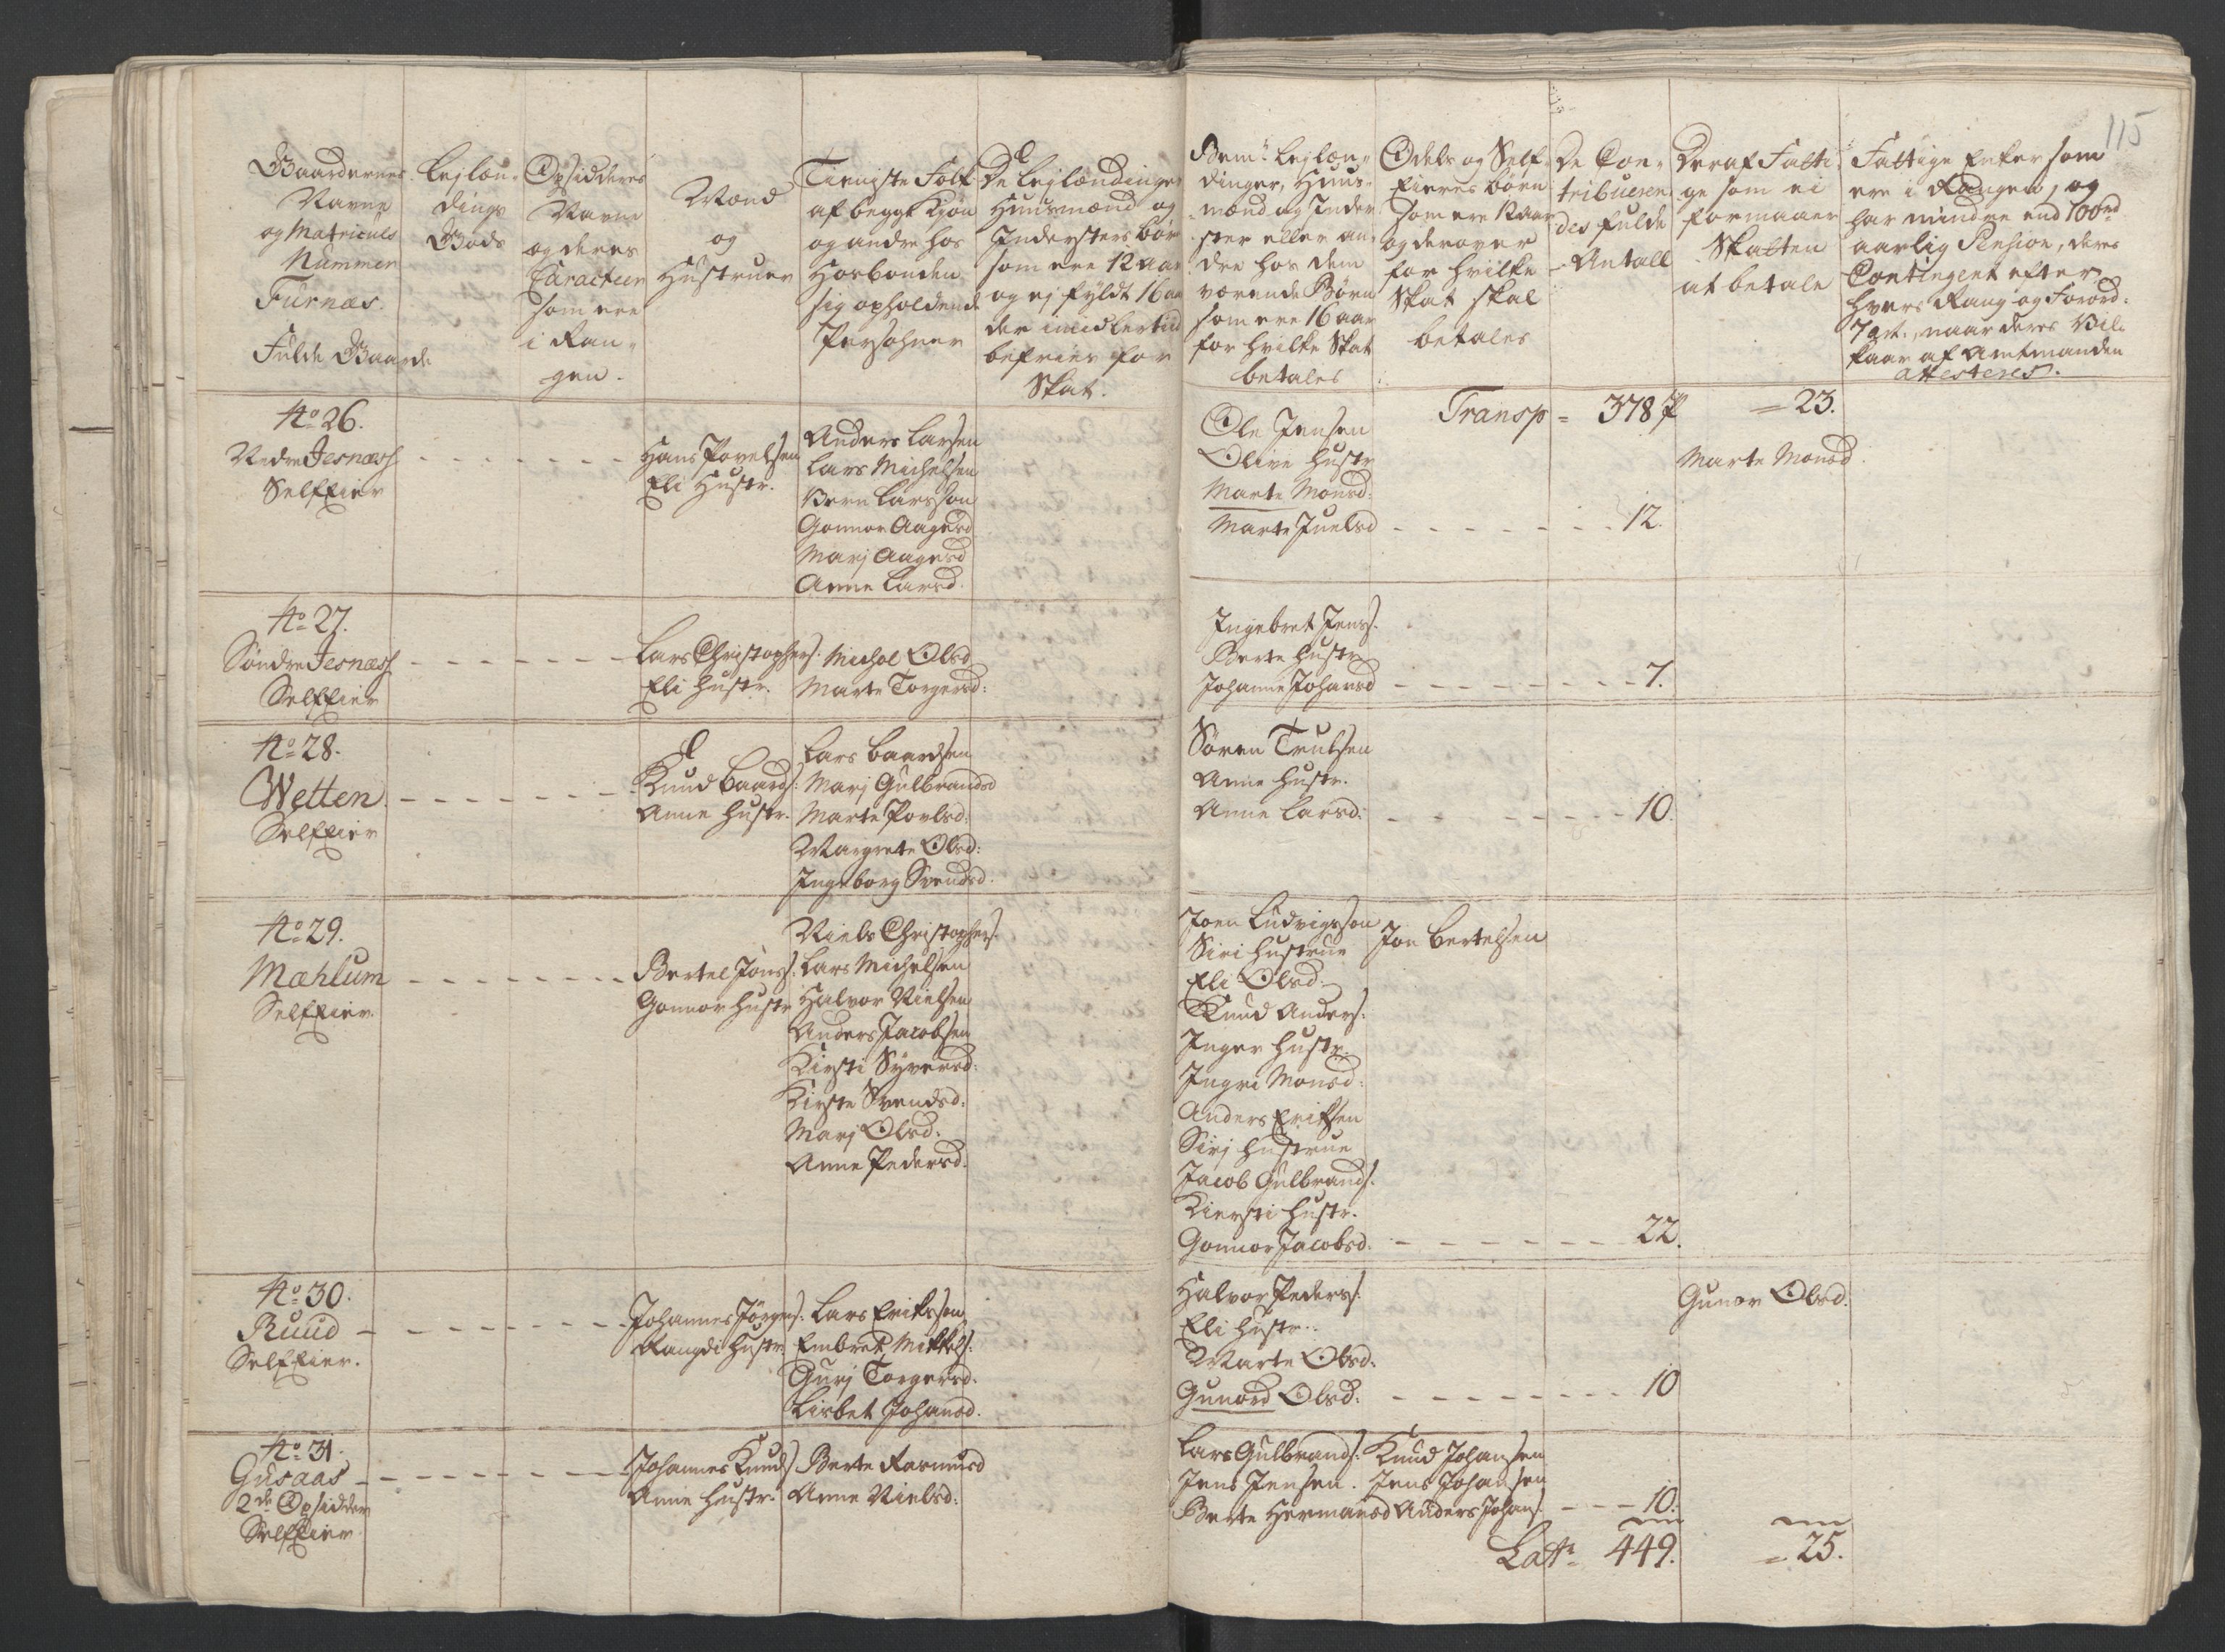 115
Gaardernes
Navne
og Matriculs
Nummer
Furnæs.
Fulde Gaarde
Lejlæn-
dings
Gods
Opsidderes
Navne
og deres
Caracteer
som ere
i Ran-
gen.
Mænd
og
Hustruer
Tieniste Folk
af begge Kjøn
og andre hos
Hosbonden
sig opholdende
Persohner
De Lejlændinger
Huusmænd og
Indersters børn
som ere 12 aar
og ej fyldt 16 aar
der imidlertid
befries for
Skat.
Bem.te Lejlæn-
dinger, Huus-
mænd og Inder
ster eller an-
dre hos dem
værende Børn
som ere 16 aar
for hvilke Skat
betales
Odels og Self
Eieres børn
som ere 12 aar
og derover
for hvilke
Skat skal
betales
De Con-
tribueren
des fulde
Antall
Deraf Fatti
ge som ei
formaaer
Skatten
at betale
Fattige Enker som
ere i Rangen, og
har mindre end 100 rd
aarlig Pension, deres
Contingent efter
hvers Rang og Forord:
7 art:, naar deres Vil-
kaar af Amtmanden
attesteres.
Transp = 378 = 23.
No 26.
Nedre Jesness
Selfeier
Hans Povelsen
Eli Hustr.
Anders Larsen
Lars Michelsen
Bern Larsson
Gonnor Aagesd
Marj Aagesd
Anne Larsd.
Ole Jensen
Olive Hustr
Marte Monsd:
Marte Juelsd 12.
Marte Monsd.
No 27.
Søndre Jesness
Selfeier
Lars Christophers:
Eli Hustr.
Michol Olsd
Marte Torgersd:
Ingebret Jens.
Berte Hustr.
Johanne Johansd 7.
No 28.
Wetten
Selfeier
Knud Baards:
Anne Hustr.
Lars Baardsen
Marj Gulbrandsd
Marte Povlsd:
Margrete Olsd:
Ingeborg Svendsd.
Søren Trulsen
Anne Hustr.
Anne Larsd: 10.
No 29.
Mæhlum
Selfeier.
Bertel Jons:
Gonnor Hustr
Niels Christophers.
Lars Michelsen
Halvor Nielsen
Anders Jacobsen
Kirsti Syversd:
Kirste Svendsd:
Marj Olsd:
Anne Pedersd.
Joen Ludvigsson
Siri Hustrue
Eli Olsd.
Knud Anders:
Inger Hustr.
Ingri Monsd:
Anders Eriksen
Sirj Hustrue
Jacob Gulbrands.
Kiersti Hustr.
Gonnor Jacobsd. 22.
Jon Bertelsen
No 30.
Ruud
Selfeier.
Johannes Jørgens:
Rangdi Hustr
Lars Erikssen
Embret Mikkels:
Gurj Torgersd.
Lisbet Johansd.
Halvor Peders.
Eli Hustr.
Marte Olsd:
Gunord Olsd: 10
Gunor Olsd.
No 31.
Gusaas
2de Opsidder
Selfeier
Johannes Knuds
Anne Hustr.
Berte Rasmusd
Anne Nielsd:
Lars Gulbrands:
Jens Jensen.
Berte Hermansd
Knud Johansen
Jens Johansen
Anders Johans. 10.
Lat: 449. = 25.